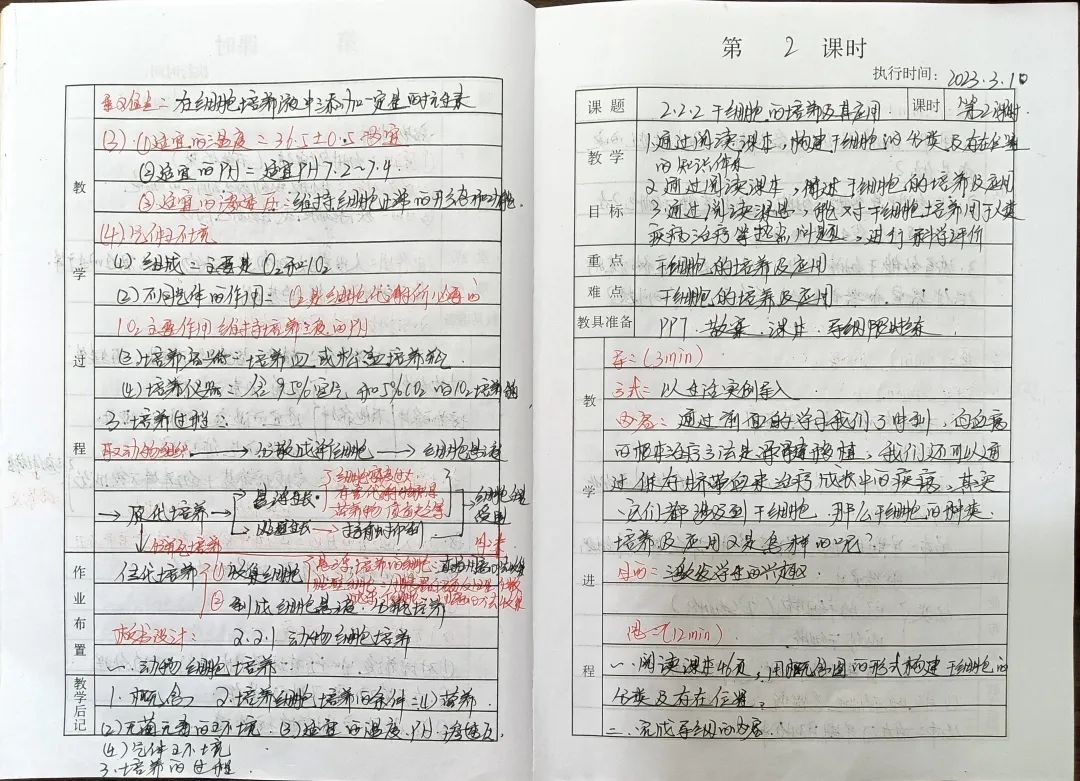 教学过程
意义信息：在细胞培养液中添加一定量的抗生素
(3) ①适宜的温度：36.5±0.5 适宜
②适宜的PH：适宜PH 7.2~7.4
③适宜的渗透压：维持细胞正常的形态和功能
(4)气体环境
(1) 组成：主要是O2和CO2
(2) 不同气体的作用：O2是细胞代谢所必需的
CO2主要作用维持培养液的PH
(3)培养容器：培养皿或松盖培养瓶
(4)培养仪器：含95%空气和5%CO2的CO2培养箱
3.培养过程：
取动物组织 → 分散成单个细胞 → 细胞悬液
→ 原代培养
悬浮生长
细胞密度过大
有害代谢物积累
营养物质消耗
贴壁生长 → 接触抑制
细胞分裂受阻
传代培养
作业布置
传代培养 ①收集细胞
②制成细胞悬液 分瓶培养
板书设计： 2.2.1 动物细胞培养
一.动物细胞培养
教学后记
1.概念 2.培养细胞培养的条件：(1)营养
(2)无菌无毒的环境 (3)适宜的温度.PH.渗透压
(4)气体环境
3.培养的过程
第 2 课时
执行时间：2023.3.10
课题 2.2.2 干细胞的培养及其应用 课时 第2课时
教学目标
1.通过阅读课本，构建干细胞的分类及存在位置
的知识体系
2.通过阅读课本，概述干细胞的培养及应用
3.通过阅读课本，能对干细胞培养用于人类
疾病治疗等热点问题，进行科学评价
重点 干细胞的培养及应用
难点 干细胞的培养及应用
教具准备 PPT.教案.课本.导纲限时练
教学进程
导：(3min)
方式：以生活实例导入
内容：通过前面的学习我们了解到，白血病
的根本治疗方法是骨髓移植，我们还可以通
过保存脐带血来治疗成长中的疾病，其实
它们都涉及到干细胞，那么干细胞的种类.
培养及应用又是怎样的呢？
目的：激发学生的兴趣
思：(12min)
一.阅读课本，用概念图的形式构建干细胞的
分类及存在位置。
二.完成导纲的内容